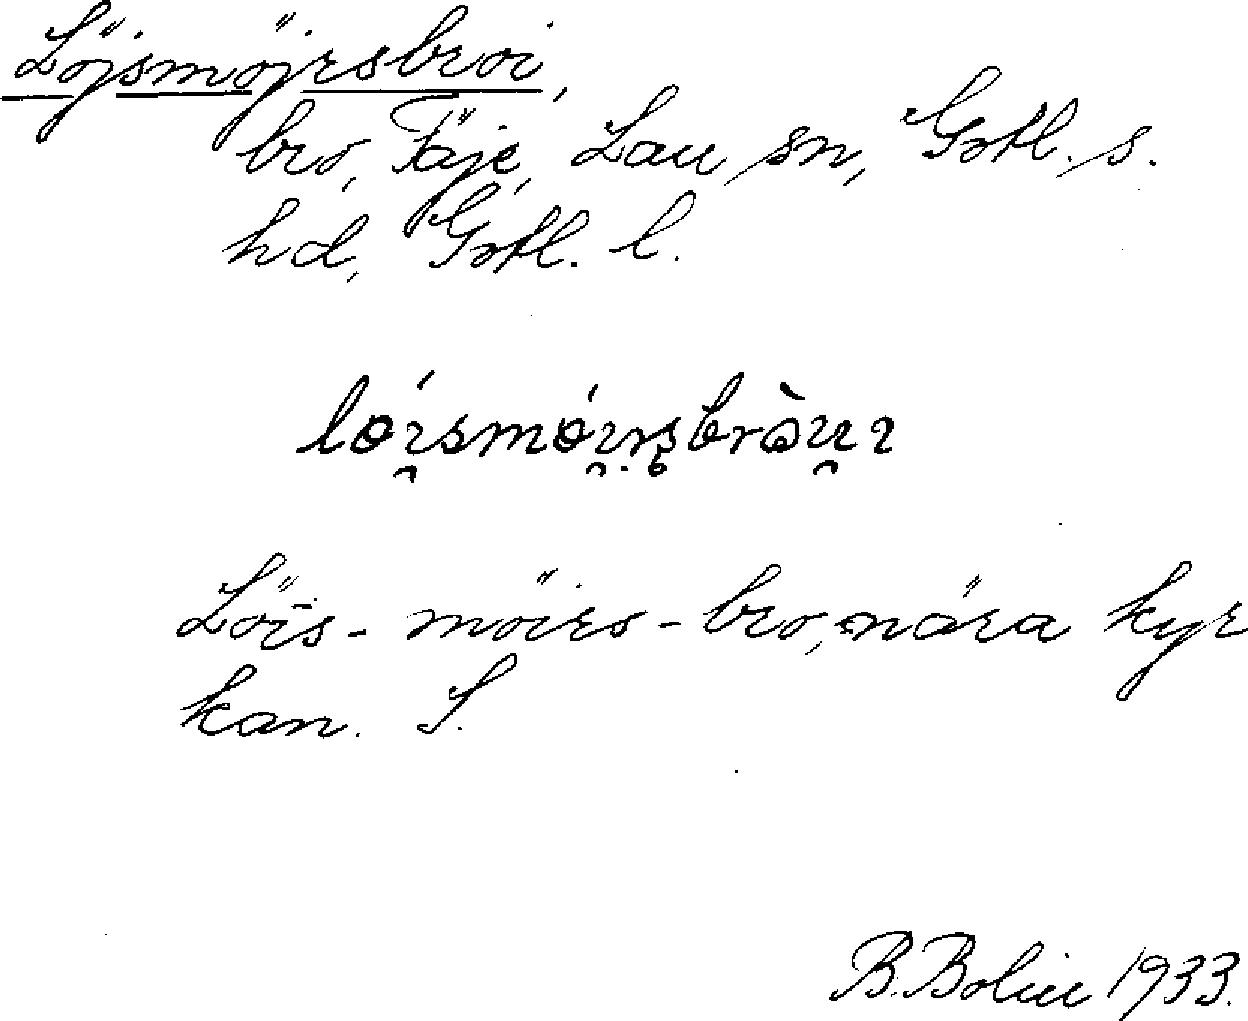 Löjsmöjrsbroi,
bro, Fäje, Lau sn, Gotl. s.
hd, Gotl. l.
Löis-möirs-bro, nära kyr
kan. S.
B. Bolin 1933.